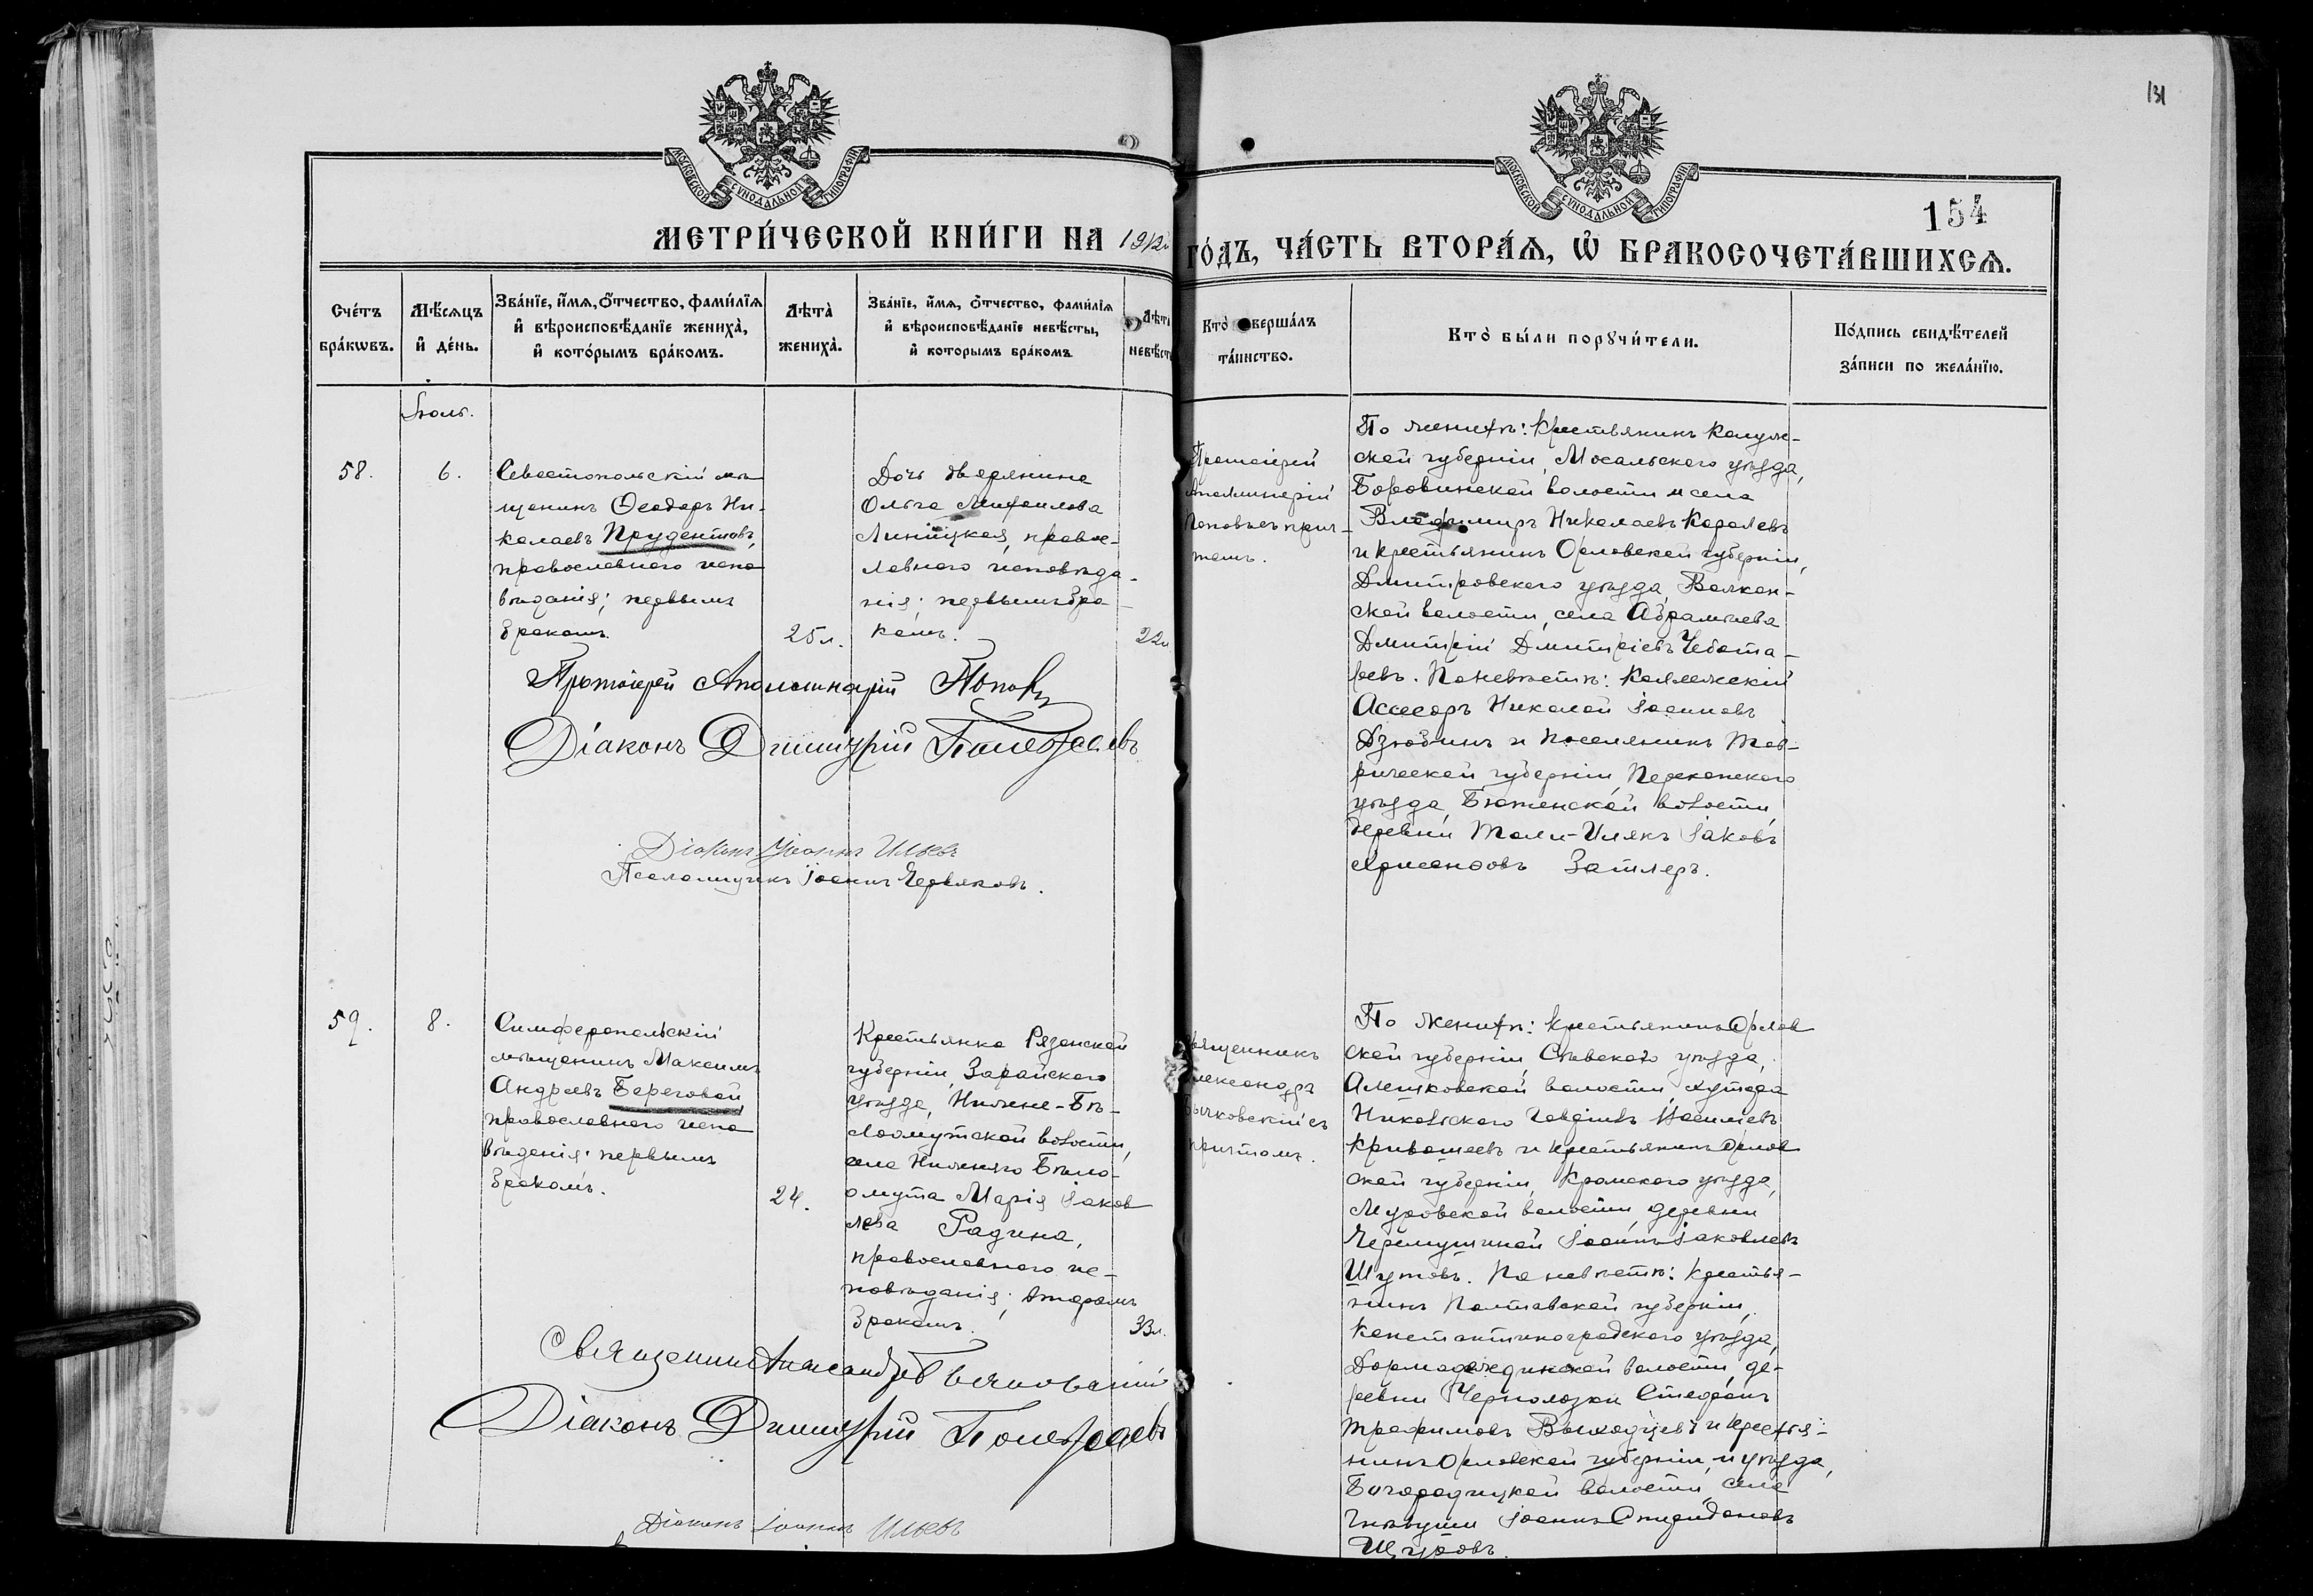 131
154
МОСКОВСКОЙ СУНОДАЛЬНОЙ ТИПОГРАФІИ
МОСКОВСКОЙ СУНОДАЛЬНОЙ ТИПОГРАФІИ
МЕТРИ́ЧЕСКОЙ КНИ́ГИ НА 1912
ГО́ДЪ, ЧА́СТЬ ВТОРА́Ѧ, Ѡ҆ БРАКОСОЧЕТА́ВШИХСѦ.
Сче́тъ
бра́кѡвъ.
Мѣ́сѧцъ
и҆ де́нь.
Зва́нїе, и҆́мѧ, ѻ҆́тчество, фами́лїѧ
и҆ вѣроисповѣ́данїе жениха̀,
и҆ кото́рымъ бра́комъ.
Лѣта̀
жениха̀.
Зва́нїе, и҆́мѧ, ѻ҆́тчество, фами́лїѧ
и҆ вѣроисповѣ́данїе невѣ́сты,
и҆ которымъ бра́комъ
Лѣта
невѣсты
Кто̀ совершáлъ
та́инство.
Кто̀ бы́ли порꙋчи́тели.
По́дпись свидѣ́телей
за́писи по жела́нїю.
Іюль.
58.
6.
Севастопольскій мѣ-
щанинъ Ѳеодоръ Ни-
колаевъ Прудентовъ,
православнаго испо-
вѣданія; первымъ
бракомъ.
25 л.
Дочь дворянина
Ольга Михаилова
Линицкая, правос-
лавнаго исповѣда-
нія; первымъ бра-
комъ.
22 л
Протоіерей
Аполлинарій
Поповъ съ прич-
томъ.
По женихѣ: крестьянинъ Калуж-
ской губерніи, Мосальскаго уѣзда,
Боровинской волости и села
Владимиръ Николаевъ Королевъ
и крестьянинъ Орловской губерніи,
Дмитровскаго уѣзда, Волкон-
ской волости, села Абрамѣева
Дмитрій Дмитріевъ Чебота-
ревъ. По невѣстѣ: Коллежскій
Ассесоръ Николай Іоанновъ
Дзюбинъ и поселянинъ Тав-
рической губерніи, Перекопскаго
уѣзда, Бютенской волости,
деревни Іаковъ
Затлеръ.
Протоіерей Аполлинарій Поповъ
Діаконъ Димитрій Полевъ
Діаконъ Іоаннъ Ильевъ
Псаломщикъ Іоаннъ Червяковъ.
59.
8.
Симферопольскій
мѣщанинъ Максимъ
Андреевъ Береговой,
православнаго испо
вѣданія; первымъ
бракомъ.
24.
Крестьянка Рязанской
губерніи, Зарайскаго
уѣзда, Нижне-Бѣ-
лоомутской волости,
села Нижняго Бѣло-
омута Марія Іаков
лева Радина,
православнаго ис-
повѣданія; вторымъ
бракомъ.
33 л.
Священникъ
Александръ
Бычковскій съ
причтомъ.
По женихѣ: крестьянинъ Орлов
ской губерніи, Сѣвскаго уѣзда,
Алешковской волости, хутора
Никольскаго Василіевъ
Кривошеевъ и крестьянинъ Орлов
ской губерніи, Кромскаго уѣзда,
Муровской волости, деревни
Черемушиной Іоаннъ Іаковлевъ
Шутовъ. По невѣстѣ: крестья-
нинъ Полтавской губерніи,
Константиноградскаго уѣзда,
волости, де-
ревни Чернолозки Стефанъ
Трофимовъ Выходцевъ и крестья-
нинъ Орловской губерніи и уѣзда,
Богородицкой волости, села
Іоаннъ Спиридоновъ
Щуровъ.
Священникъ Александръ Бычковскій
Діаконъ Димитрій Полевъ
Діаконъ Іоаннъ Ильевъ